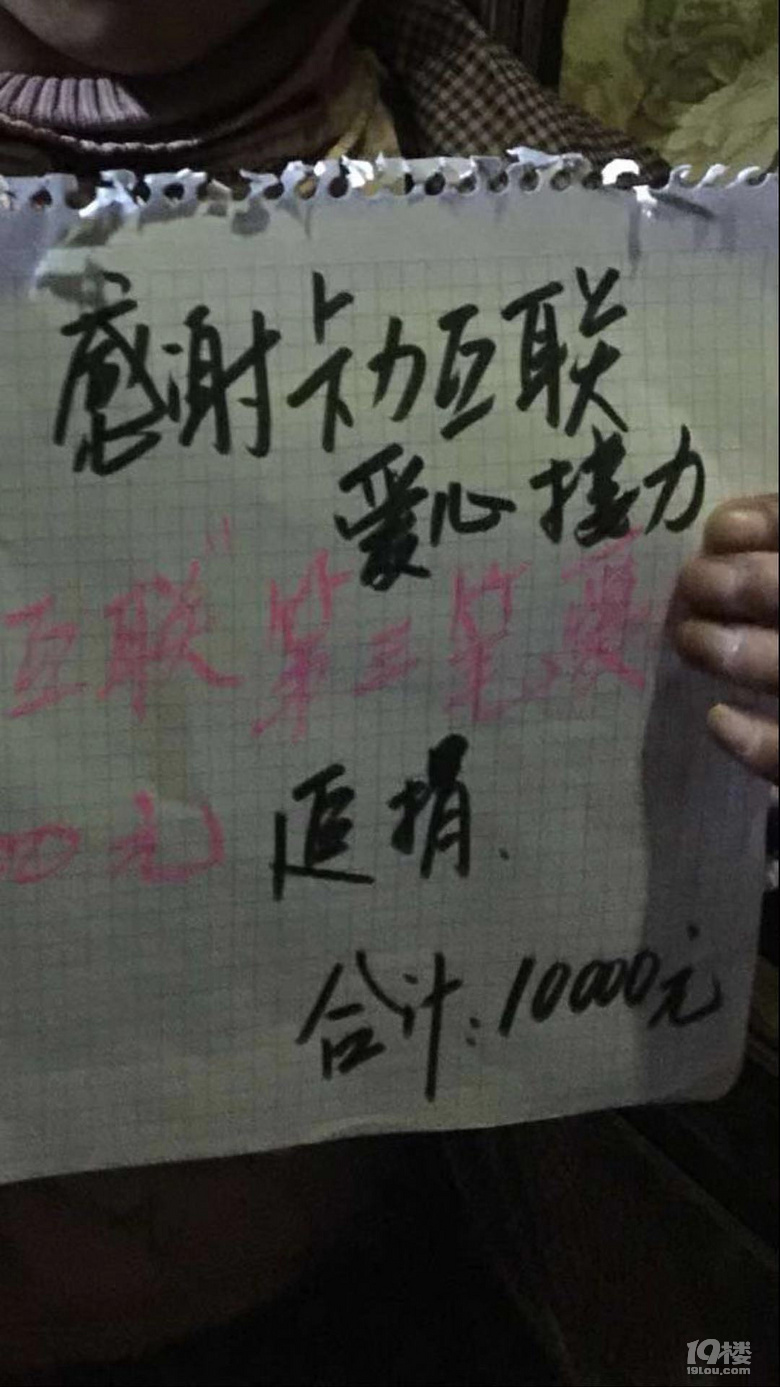 感谢卡力互联
爱心接力
互联”第三笔
00元 追捐.
合计:10000元
19楼
19lou.com